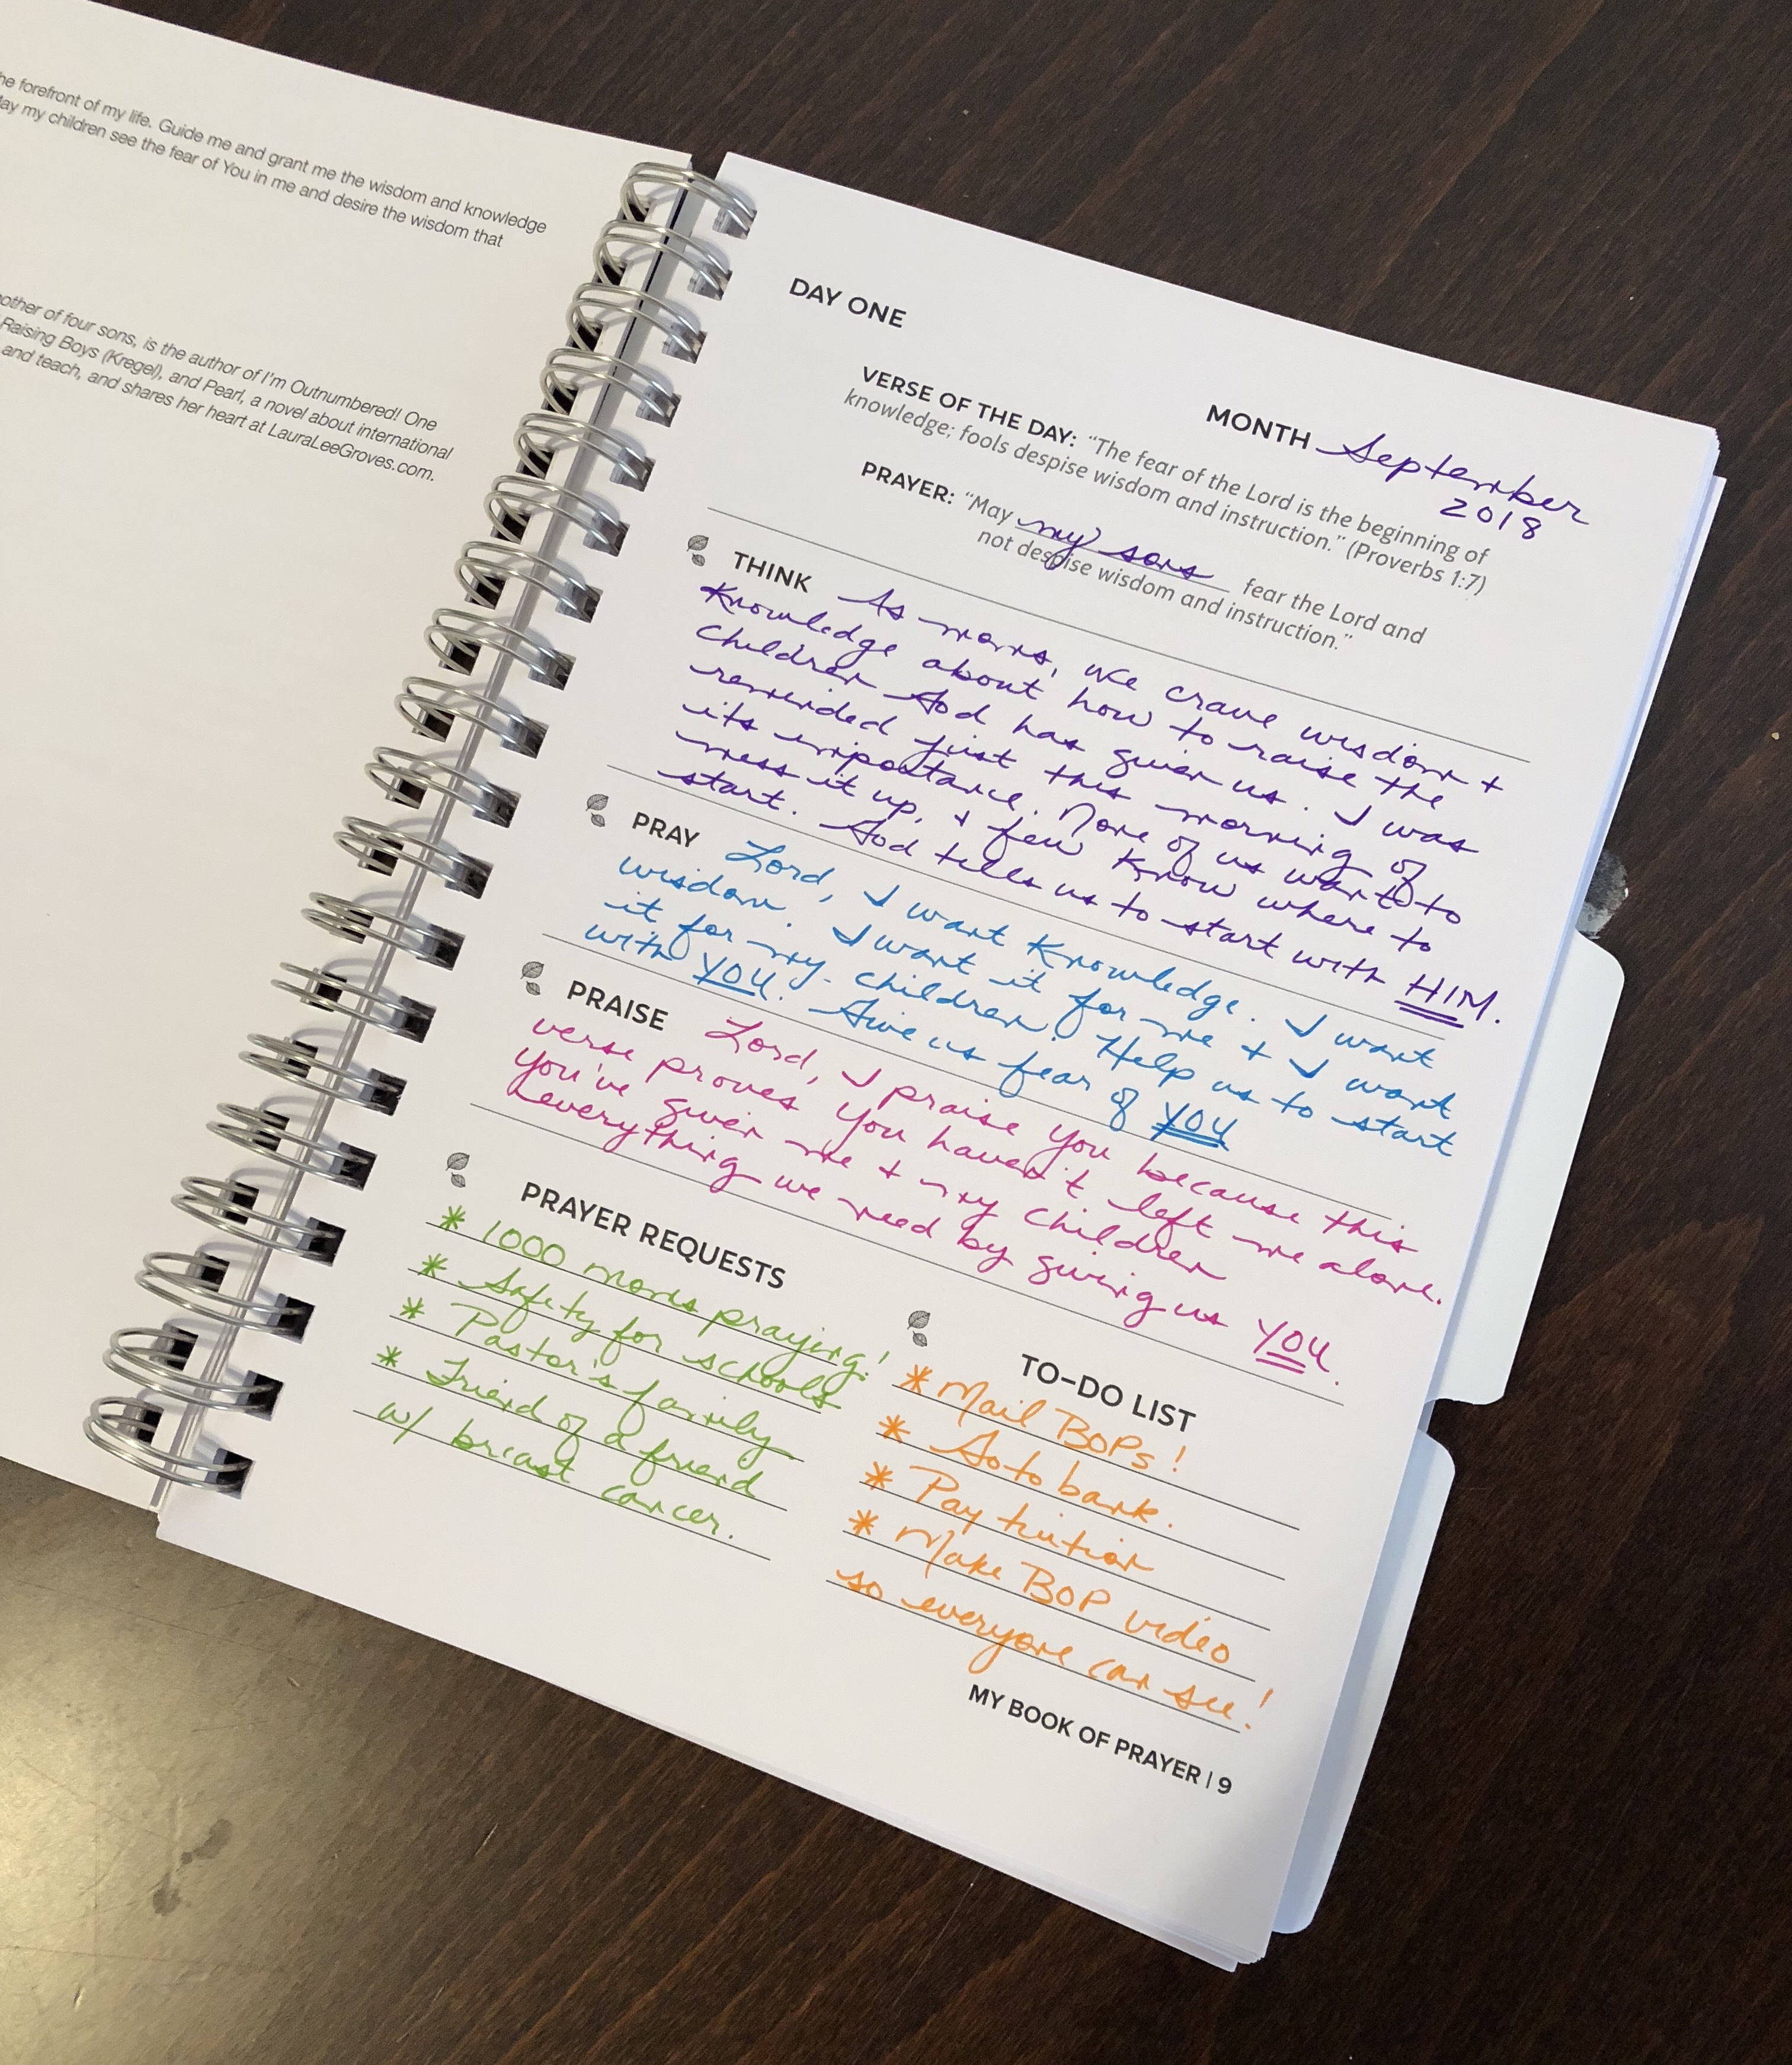 he forefront of my life. Guide me and grant me the wisdom and knowledge
ay my children see the fear of You in me and desire the wisdom that
other of four sons, is the author of I'm Outnumbered! One
Raising Boys (Kregel), and Pearl, a novel about international
and teach, and shares her heart at LauraLeeGroves.com.
DAY ONE
MONTH September
2018
VERSE OF THE DAY: "The fear of the Lord is the beginning of
knowledge; fools despise wisdom and instruction." (Proverbs 1:7)
PRAYER: "May my sons fear the Lord and
not despise wisdom and instruction."
THINK As moms, we crave wisdom +
Knowledge about how to raise the
children God has given us. I was
reminded just this morning of
its importance. None of us want to
mess it up, + few know where to
start. God tells us to start with HIM.
PRAY Lord, I want Knowledge. I want
wisdom. I want it for me + I want
it for my children. Help us to start
with YOU. Give us fear of YOU
PRAISE Lord, I praise You because this
verse proves You haven't left me alone.
You've given me + my children
everything we need by giving us YOU.
PRAYER REQUESTS
* 1000 moms praying!
* Safety for schools
* Pastor's family
* Friend of a friend
w/ breast cancer.
TO-DO LIST
* Mail BOPs!
* Go to bank.
* Pay tuition
* Make BOP video
so everyone can see!
MY BOOK OF PRAYER | 9